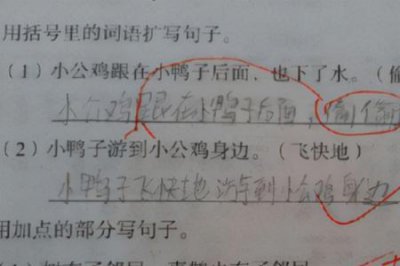 用括号里的词语扩写句子。
(1)小公鸡跟在小鸭子后面，也下了水。(偷
小公鸡跟在小鸭子后面，偷偷
(2)小鸭子游到小公鸡身边。(飞快地)
小鸭子飞快地游到小公鸡身边
用加点的部分写句子。